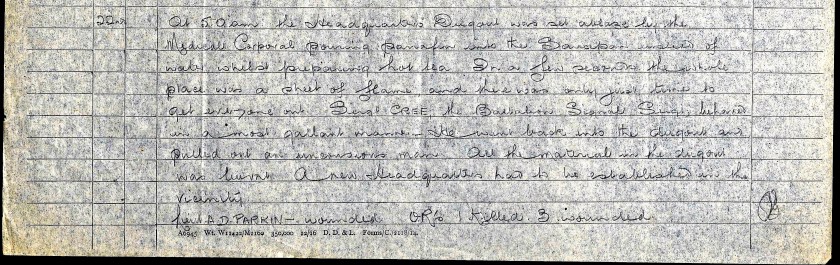 22nd At 5.0 am the Headquarters Dugout was set ablaze by the
Medical Corporal pouring paraffin into the Saucepan instead of
water whilst preparing hot tea. In a few seconds the whole
place was a sheet of flame and there was only just time to
get everyone out. Sergt CREE, the Battalion Signal Sergt, behaved
in a most gallant manner. He went back into the dugout and
pulled out an unconscious man. All the material in the dugout
was burnt. A new Headquarters had to be established in the
vicinity
Lieut A.D. PARKIN - wounded OR's 1 Killed. 3 wounded
A6945 Wt. W11422/M1160 350,000 12/16 D. D. & L. Forms/C./2118/14.